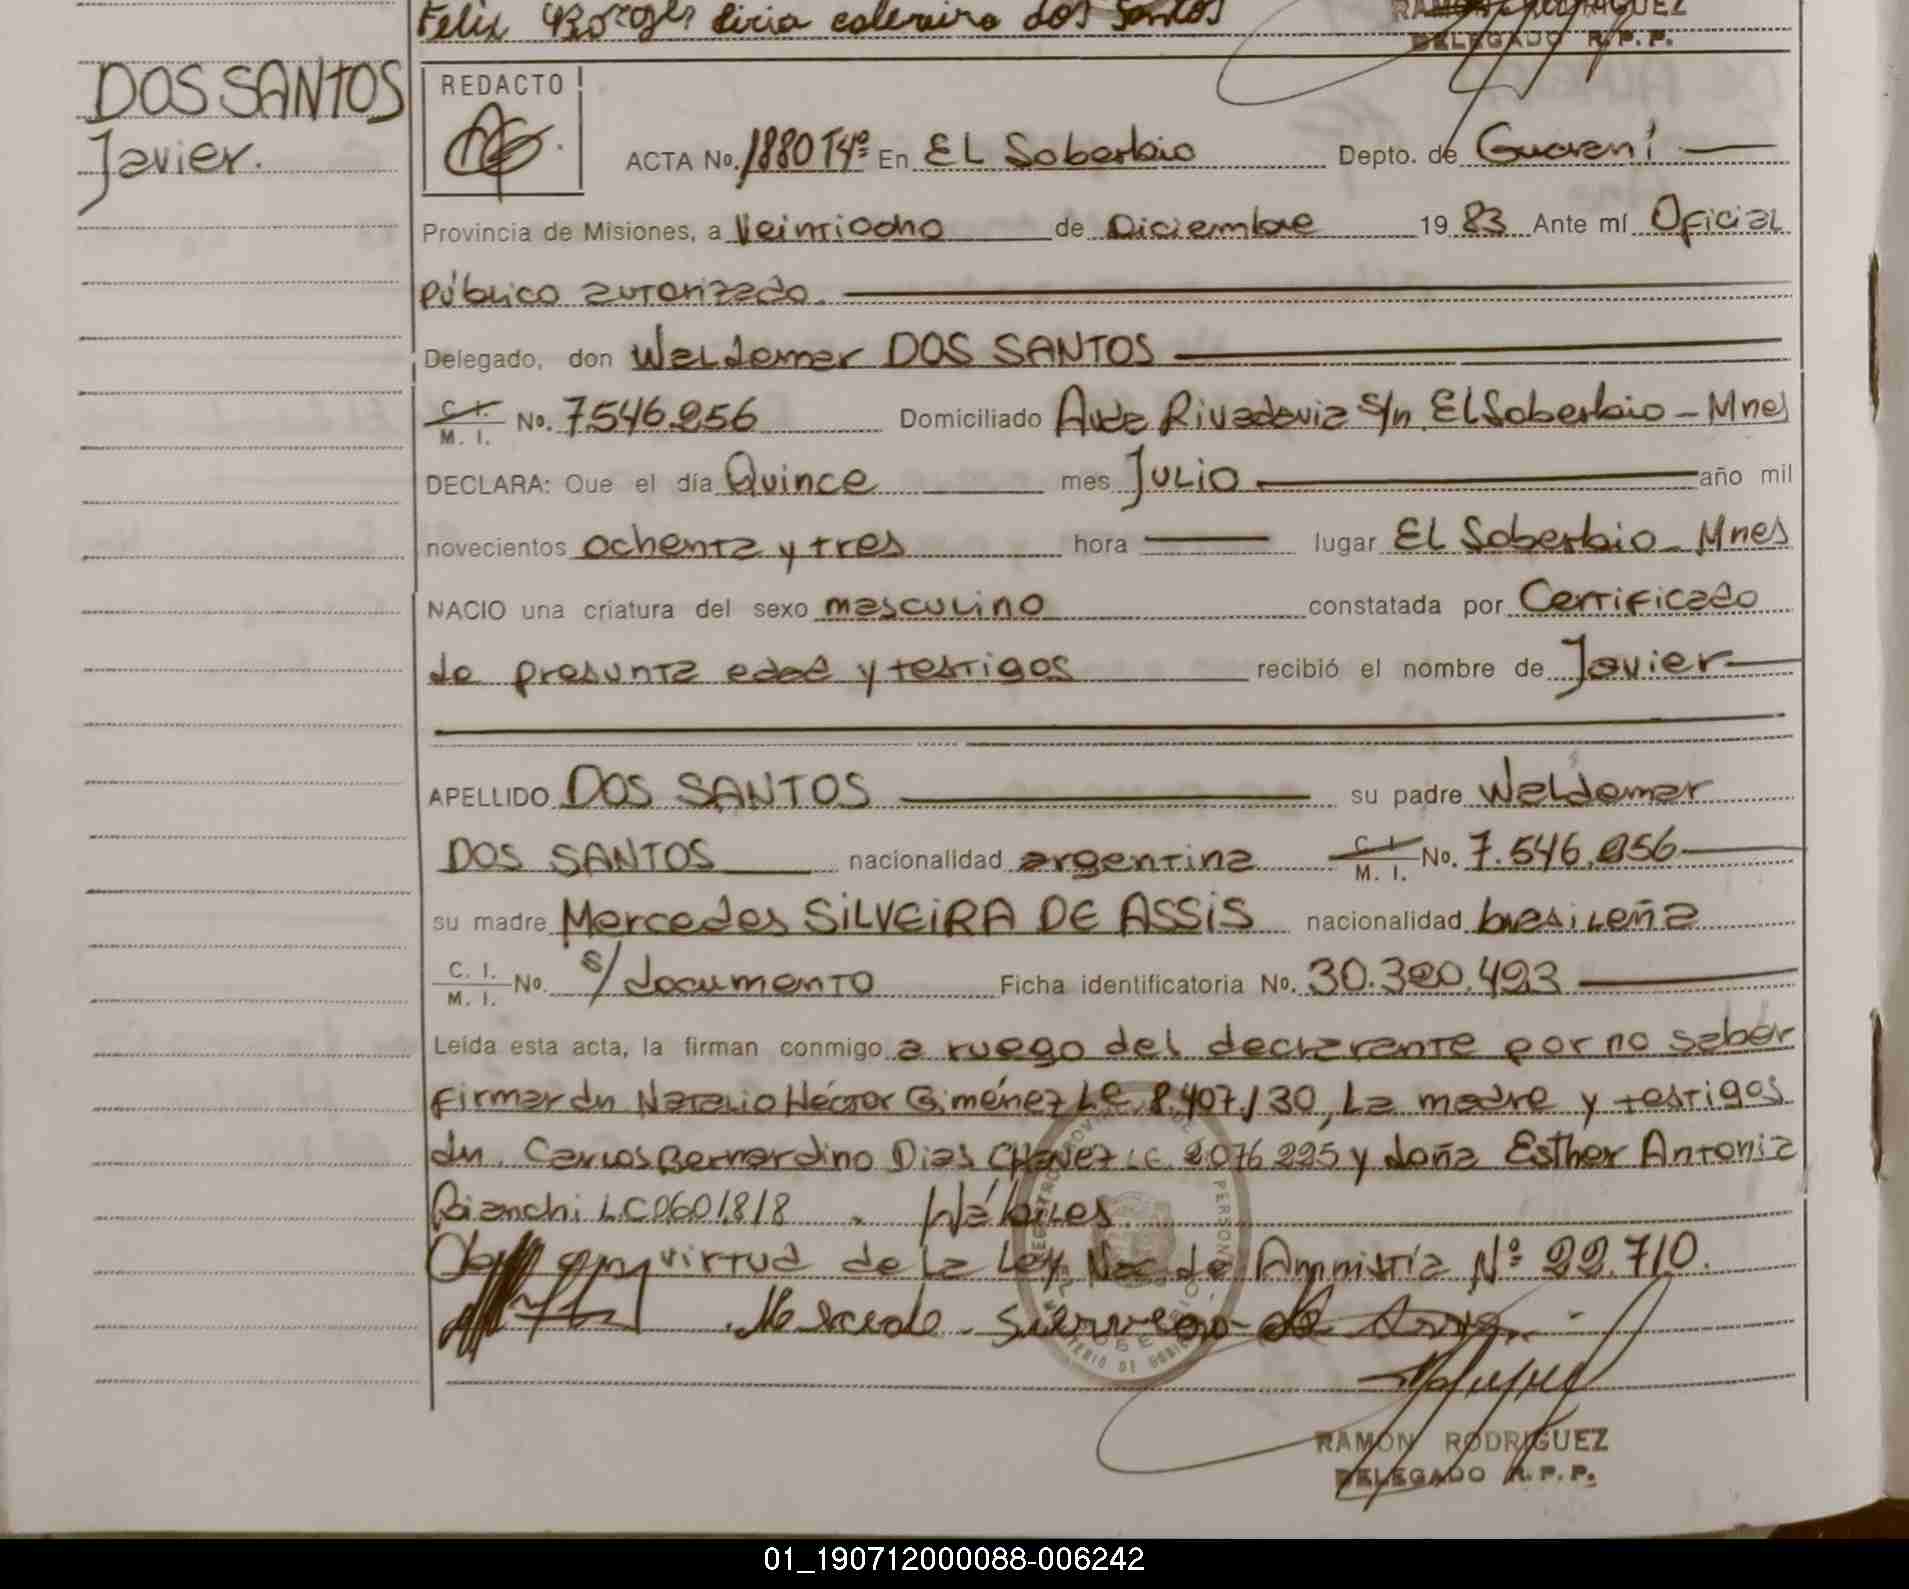 Felix Borges liria dos Santos
RAMON RODRIGUEZ
DELEGADO R.P.P.
DOS SANTOS
Javier.
REDACTO
ACTA No. 1880 Tº4º En EL Soberbio Depto. de Guarani
Provincia de Misiones, a Veintiocho de Diciembre 19 83 Ante mí Oficial
Público autorizado.
Delegado, don Waldemar DOS SANTOS
C. I. M. I. No. 7.546.256 Domiciliado Avda Rivadavia s/n El Soberbio - Mnes
DECLARA: Que el día Quince mes Julio año mil
novecientos ochenta y tres hora lugar El Soberbio - Mnes
NACIO una criatura del sexo masculino constatada por Certificado
de presunta edad y testigos recibió el nombre de Javier
APELLIDO DOS SANTOS su padre Waldemar
DOS SANTOS nacionalidad argentina C. I. M. I. No. 7.546.256
su madre Mercedes SILVEIRA DE ASSIS nacionalidad brasileña
C. I. M. I. No. s/documento Ficha identificatoria No. 30.320.493
Leída esta acta, la firman conmigo a ruego del declarante por no saber
firmar dn Natalio Héctor Giménez LE 8.407.130, La madre y testigos
dn. Carlos Bernardino Dias CHavez LE. 2076225 y doña Esther Antonia
Bianchi LC0601818. Hábiles.
en virtud de La Ley Nac. de Amnistía Nº 22.710.
RAMON RODRIGUEZ
DELEGADO R.P.P.
01_190712000088-006242